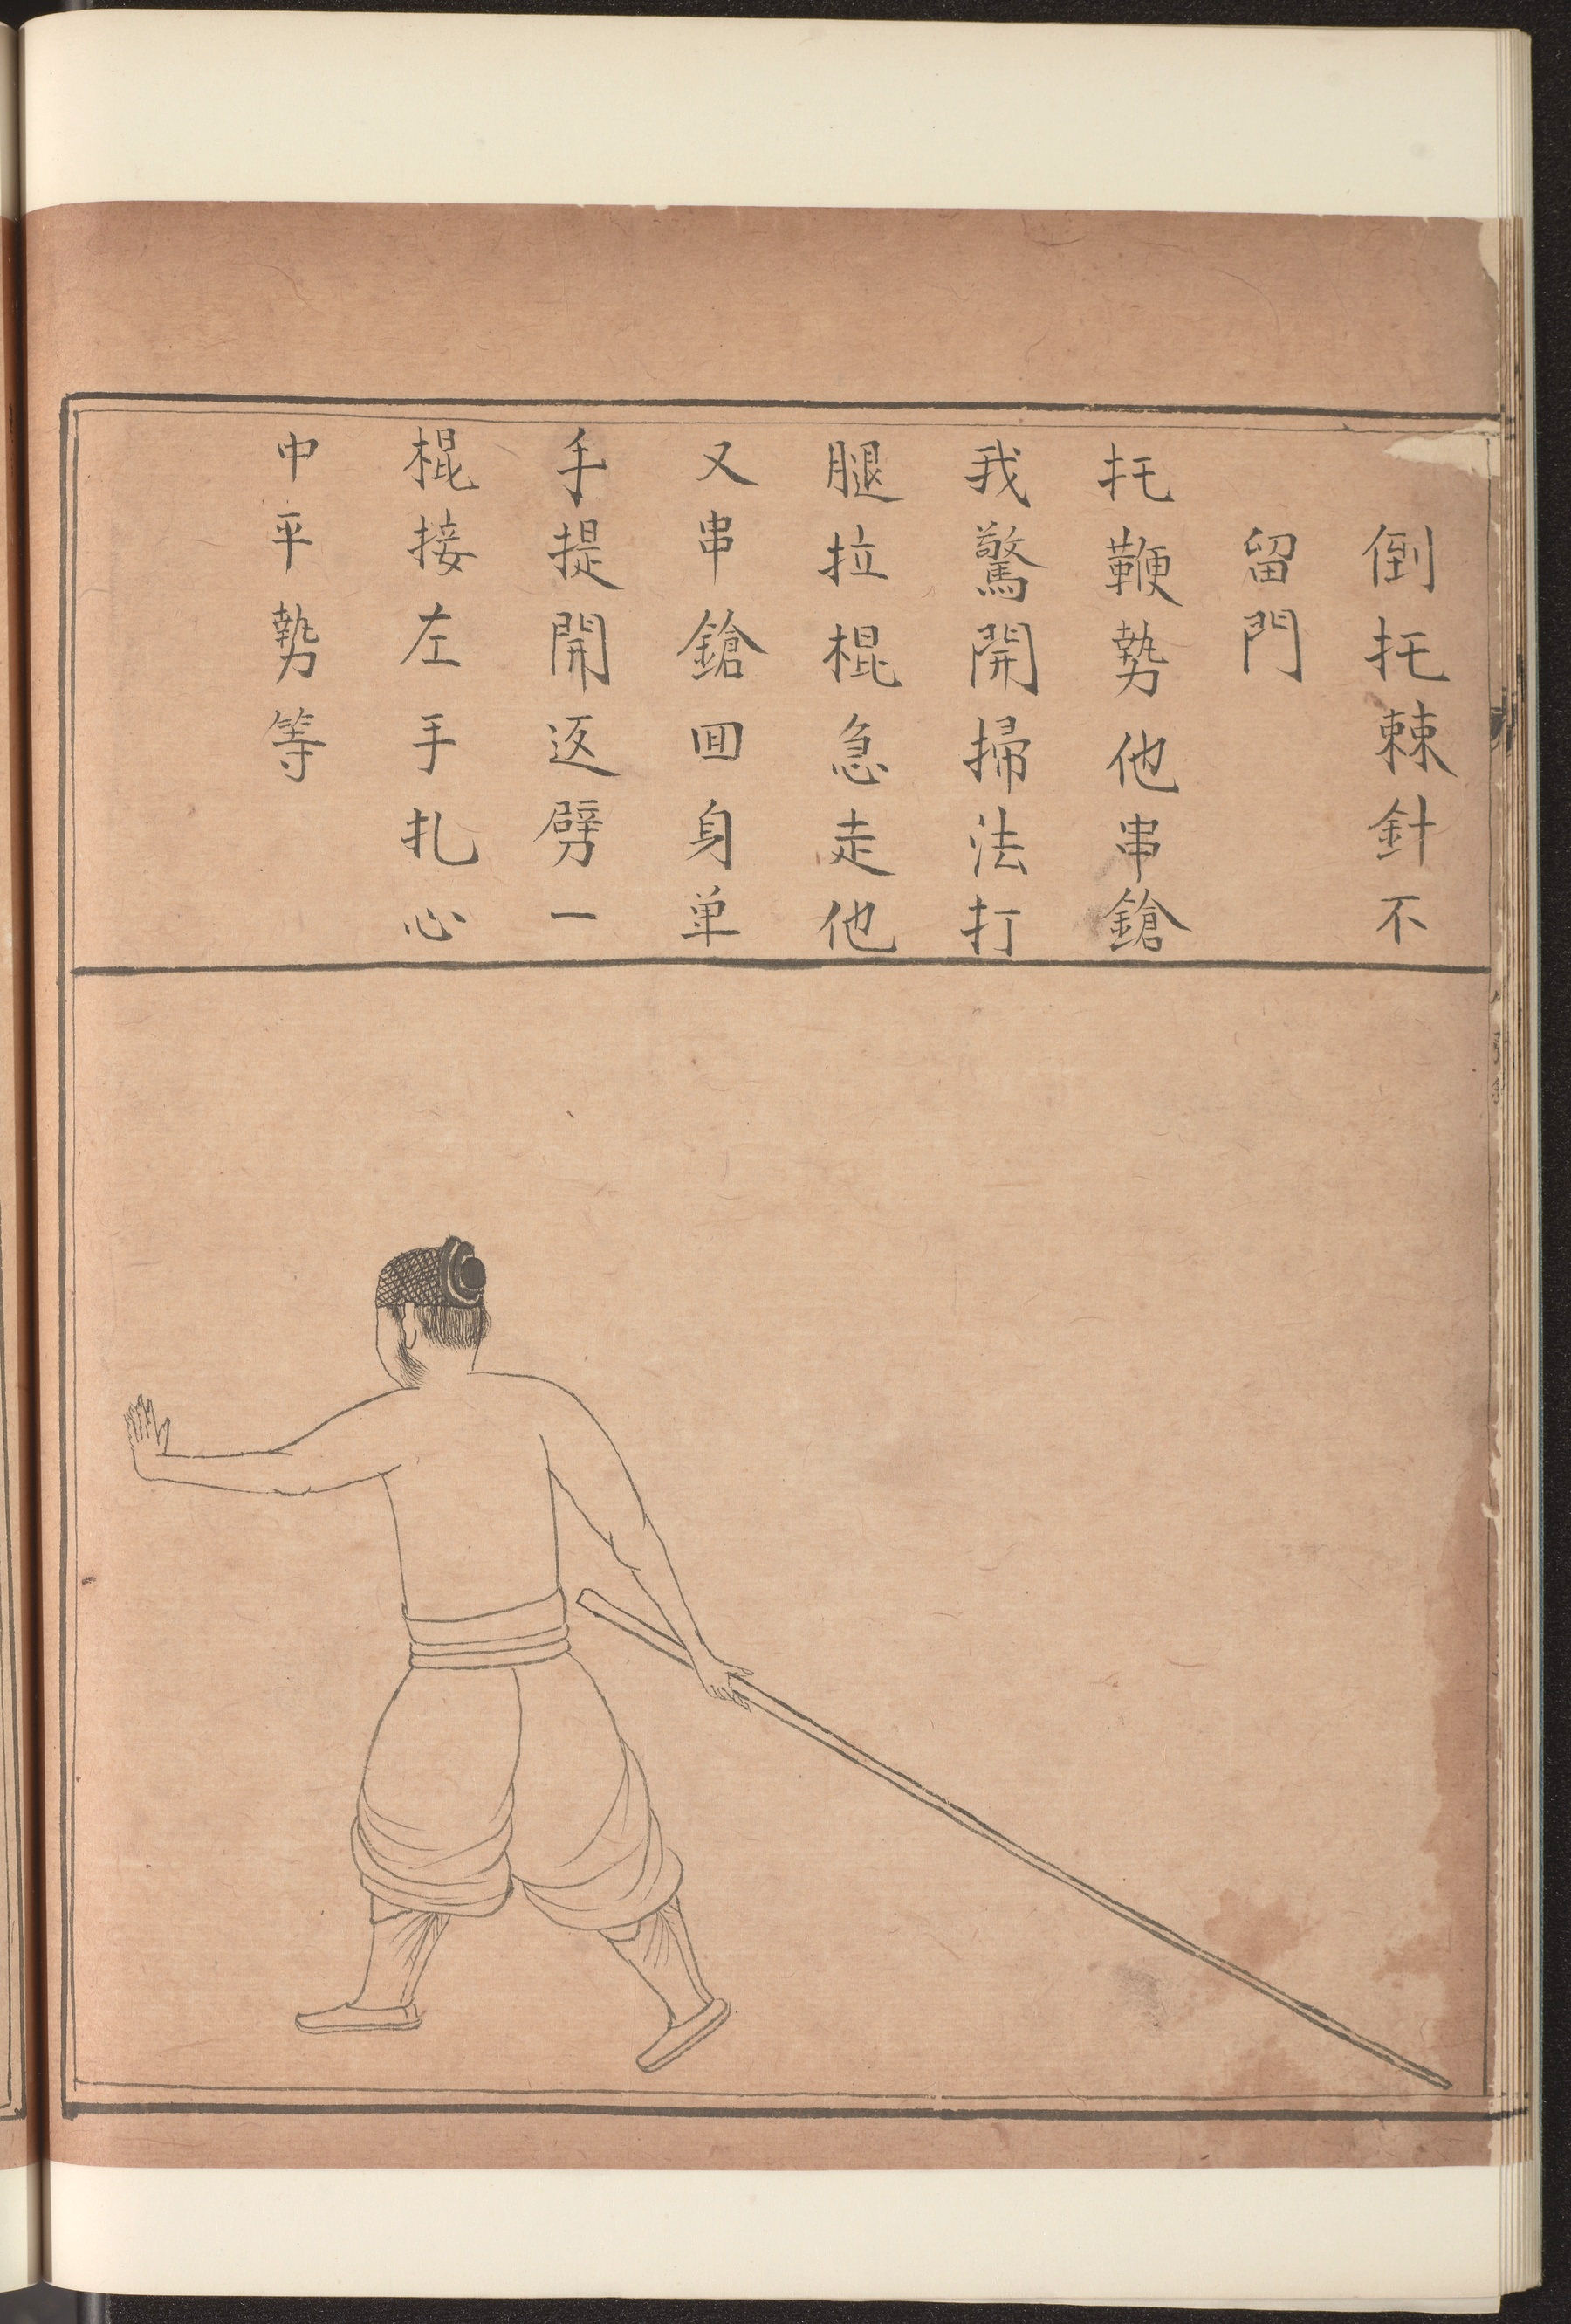 倒托棘針不
留門
托鞭勢他串鎗
我驚開掃法打
腿拉棍急走他
又串鎗回身单
手提開返劈一
棍接左手扎心
中平勢等